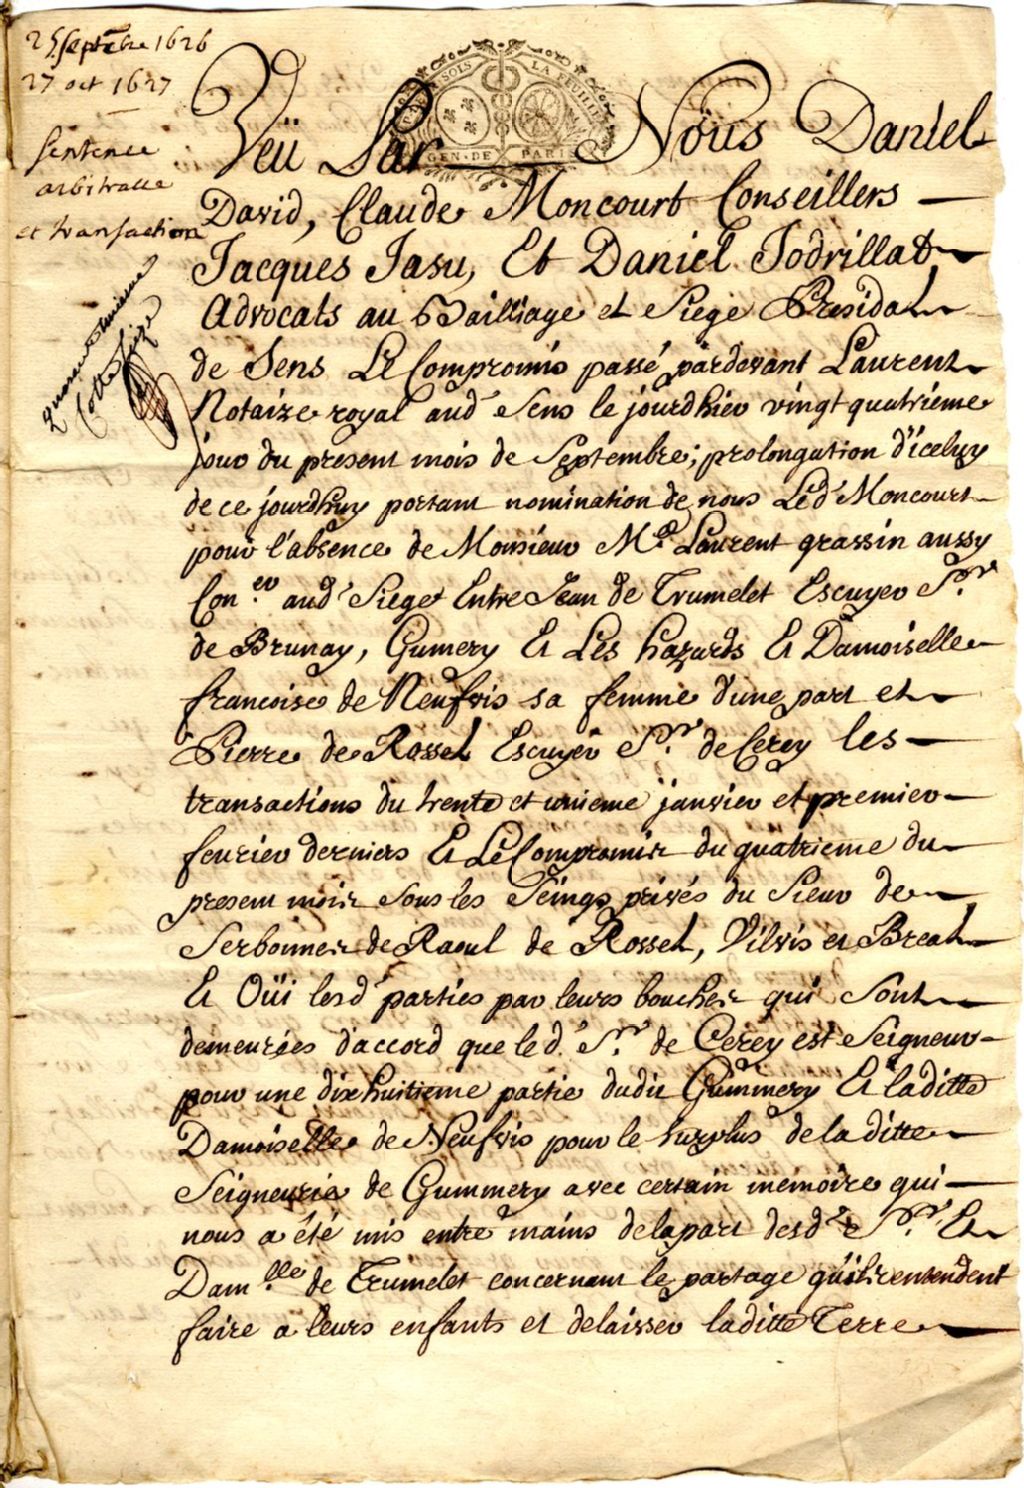 25 septebre 1626
27 oct 1627
Sentence
arbitralle
et transaction
SOLS LA FEUILLE
GEN · DE PARIS
Veü Par Nöus Daniel
David, Claude Moncourt Conseillers
Jacques Jasu, Et Daniel Jodrillat
Advocats au Bailliage et Siege Presidal
de Sens Le Compromis passé pardevant Laurent
Notaire royal aud' Sens le jourdhier vingt quatrieme
jour du present mois de Septembre; prolongation d'iceluy
de ce jourdhuy portant nomination de nous Led' Moncourt
pour l'absence de Monsieur Me. Laurent grassin aussy
Con.er aud' Siege Entre Jean de Trumelet Escuyer Sr.
de Brunay, Gumery Et Les hazards Et Damoiselle
francoise de Neufvis sa femme d'une part et
Pierre de Rossel Escuyer Sr. de Cerey les
transactions du trente et unieme janvier et premier
feurier derniers Et Le Compromis du quatrieme du
present mois Sous les Seings privés du Sieur de
Serbonnes de Raoul de Rossel, Vilvis et Breal
Et Oüi lesd' parties par leurs bouches qui Sont
demeurées d'accord que le d. Sr. de Cerey est Seigneur
pour une dixhuitieme partie dudit Gummery Et laditte
Damoiselle de Neufvis pour le surplus de laditte
Seigneurie de Gummery avec certain memoire qui
nous a été mis entre mains de la part desd. Sr. Et
Dam.lle de Trumelet concernant le partage qu'ils entendent
faire a leurs enfants et delaisser laditte Terre